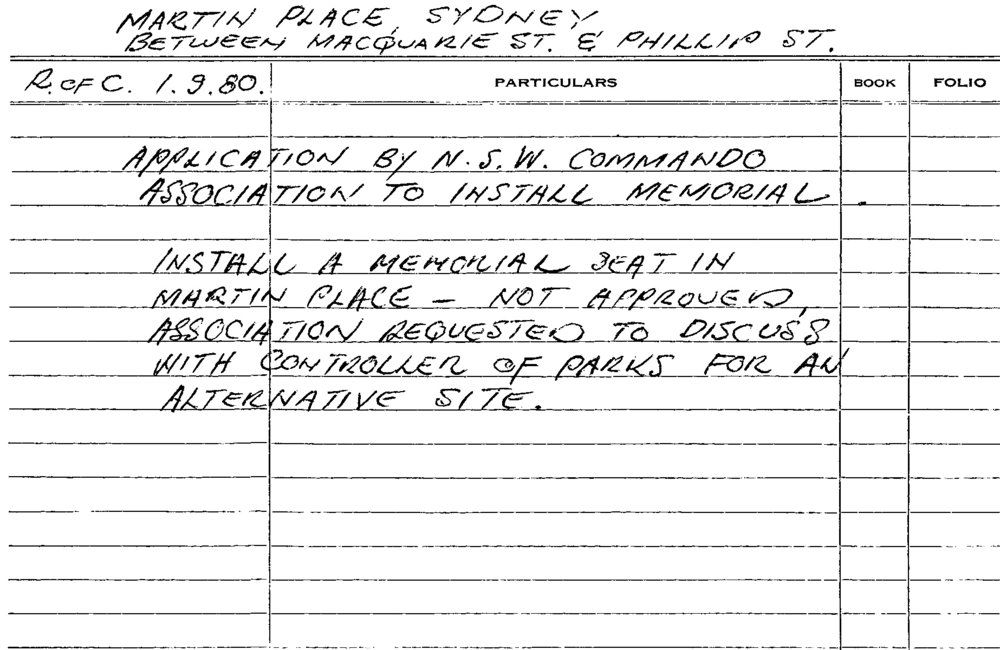 MARTIN PLACE, SYDNEY
BETWEEN MACQUARIE ST. & PHILLIP ST.
R. OF C. 1.9.80. PARTICULARS BOOK FOLIO
APPLICATION BY N.S.W. COMMANDO
ASSOCIATION TO INSTALL MEMORIAL.
INSTALL A MEMORIAL SEAT IN
MARTIN PLACE – NOT APPROVED,
ASSOCIATION REQUESTED TO DISCUSS
WITH CONTROLLER OF PARKS FOR AN
ALTERNATIVE SITE.